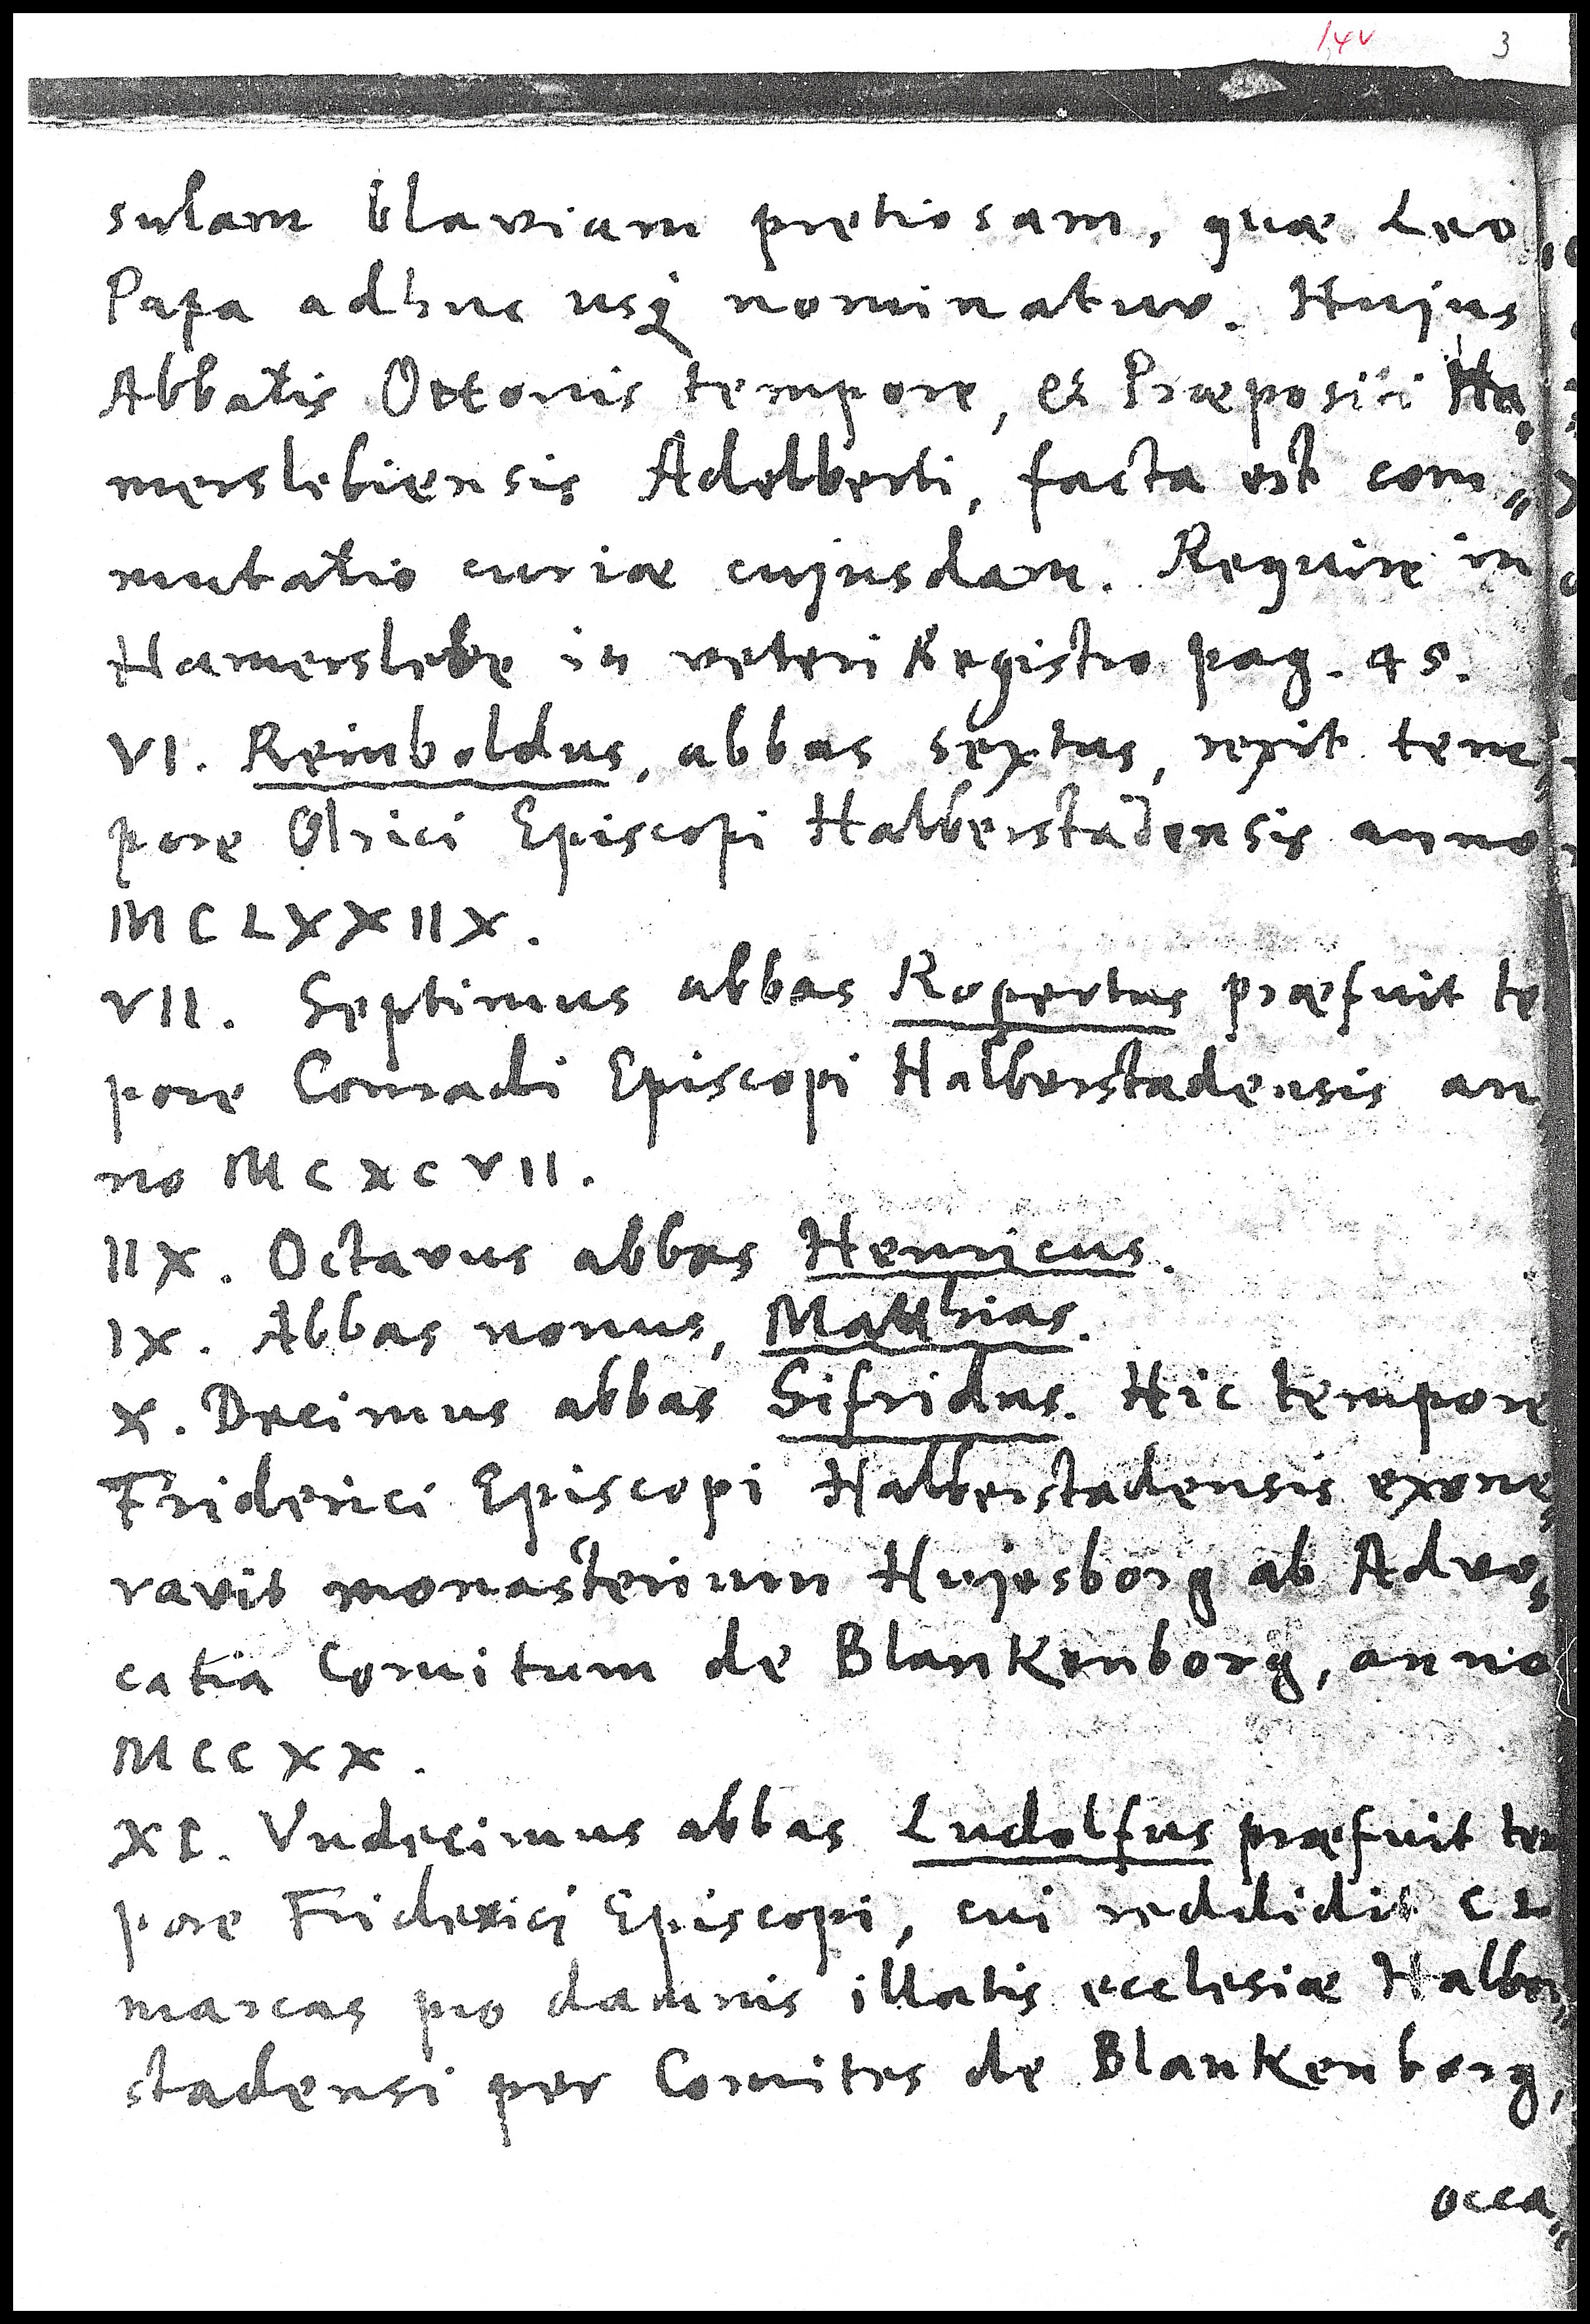 14v 3
sulam blaviam pretiosam, quæ Leo
Papa adhuc usq nominatur. Hujus
Abbatis Ottonis tempore, et Præpositi Ha,
merslebiensis Adelberti, facta est com„
mutatio curiæ cujusdam. Require in
Hamerslebe in veteri Registro pag. 45.
VI. Reinboldus, abbas sextus, rexit tem„
pore Olrici Episcopi Halberstadensis anno
MCLXXIIX.
VII. Septimus abbas Ropertus præfuit te
pore Conradi Episcopi Halberstadensis an
no MCXCVII.
IIX. Octavus abbas Henricus.
IX. Abbas nonus, Matthias.
X. Decimus abbas Sifridus. Hic tempore
Friderici Episcopi Halberstadensis exone„
ravit monasterium Hujesborg ab Advo„
catia Comitum de Blankenborg, anno
MCCXX.
XI. Vndecimus abbas Ludolfus præfuit tem
pore Friderici Episcopi, cui reddidit CL
marcas pro damnis illatis ecclesiæ Halber„
stadensi per Comites de Blankenborg,
occa„